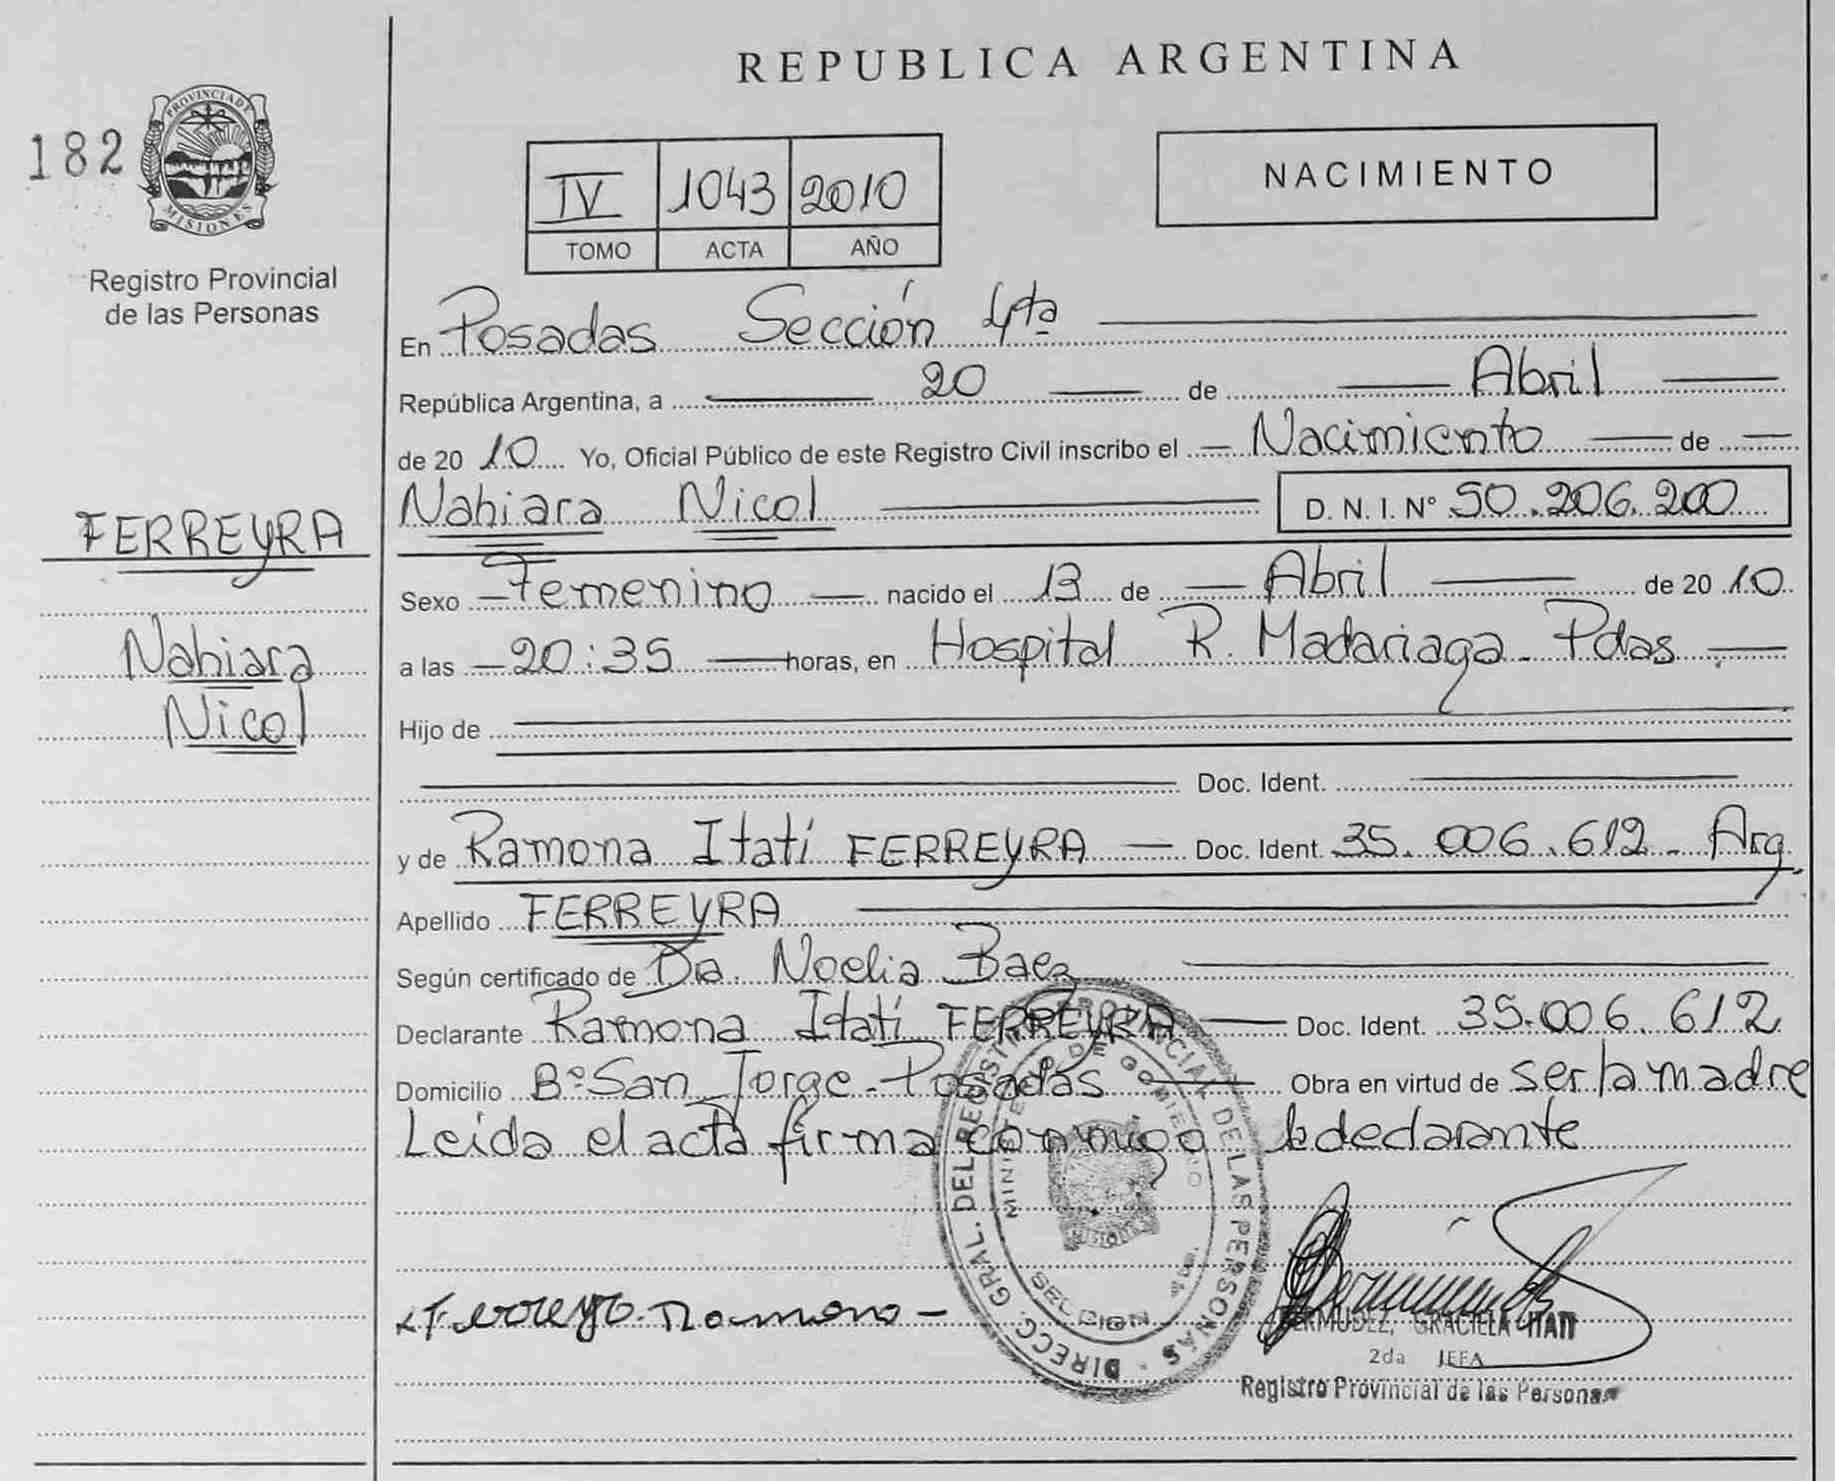 REPUBLICA ARGENTINA
182
PROVINCIA DE
MISIONES
Registro Provincial
de las Personas
IV 1043 2010
TOMO ACTA AÑO
NACIMIENTO
En Posadas Sección 4ta
República Argentina, a 20 de Abril
de 2010 Yo, Oficial Público de este Registro Civil inscribo el Nacimiento de
Nahiara Nicol D. N. I. Nº 50.206.200
FERREYRA
Nahiara
Nicol
Sexo Femenino nacido el 13 de Abril de 2010
a las 20:35 horas, en Hospital R. Madariaga - Pdas
Hijo de
Doc. Ident.
y de Ramona Itatí FERREYRA Doc. Ident. 35.006.612 - Arg.
Apellido FERREYRA
Según certificado de Dra. Noelia Baez
Declarante Ramona Itatí FERREYRA Doc. Ident. 35.006.612
Domicilio Bº San Jorge - Posadas Obra en virtud de ser la madre
Leida el acta firma conmigo la declarante
DIRECC. GRAL. DEL REGISTRO PROVINCIAL DE LAS PERSONAS
MINISTERIO DE GOBIERNO
MISIONES
SECCION
Ferreyra Ramona -
BERMUDEZ, GRACIELA ITATI
2da JEFA
Registro Provincial de las Personas